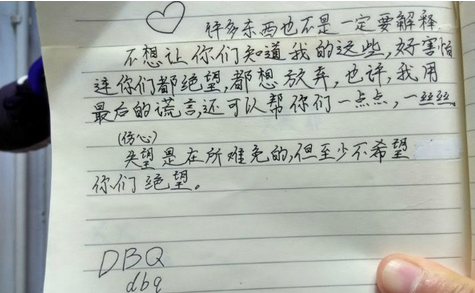 许多东西也不是一定要解释
不想让你们知道我的这些，好害怕
连你们都绝望，都想放弃，也许，我用
最后的谎言，还可以帮你们一点点，一丝丝。
(伤心)
失望是在所难免的，但至少不希望
你们绝望。
DBQ
dbq